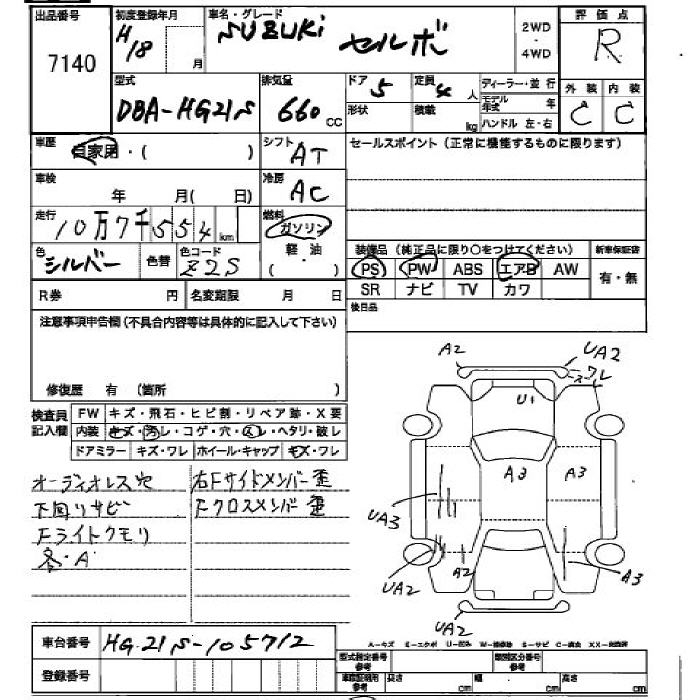 出品番号 初度登録年月 車名・グレード 2WD 評価点
7140 H18 月 SUZUKI セルボ ・ 4WD R
型式 排気量 ドア 定員 ディーラー・並行 外装 内装
DBA-HG21S 660 cc 5 4 人 モデル年式 年 C C
形状 積載 kg ハンドル 左・右
車歴 自家用・( ) シフト AT セールスポイント(正常に機能するものに限ります)
車検 年 月( 日) 冷房 AC
走行 10万7千554 km 燃料 ガソリン
色 シルバー 色替 色コード Z2S 軽・油 ・ ( )
装備品(純正品に限り○をつけてください) 新車保証書
PS PW ABS エアB AW 有・無
SR ナビ TV カワ
R券 円 名変期限 月 日 後日品
注意事項申告欄(不具合内容等は具体的に記入して下さい)
修復歴 有 (箇所 )
検査員記入欄 FW キズ・飛石・ヒビ割・リペア跡・X要
内装 キズ・汚レ・コゲ・穴・スレ・ヘタリ・破レ
ドアミラー キズ・ワレ ホイール・キャップ キズ・ワレ
オーディオレス穴 右Fサイドメンバー歪
下回リサビ Fクロスメンバ歪
Fライトクモリ
各・A
A2 UA2
ワレ
U1
A3 A3
UA3
UA2 A2 A3
UA2
車台番号 HG21S-105712
A-キズ E-エクボ U-凹ミ S-サビ
登録番号 型式指定番号 参考 類別区分番号 参考
長さ cm 幅 cm 高さ cm